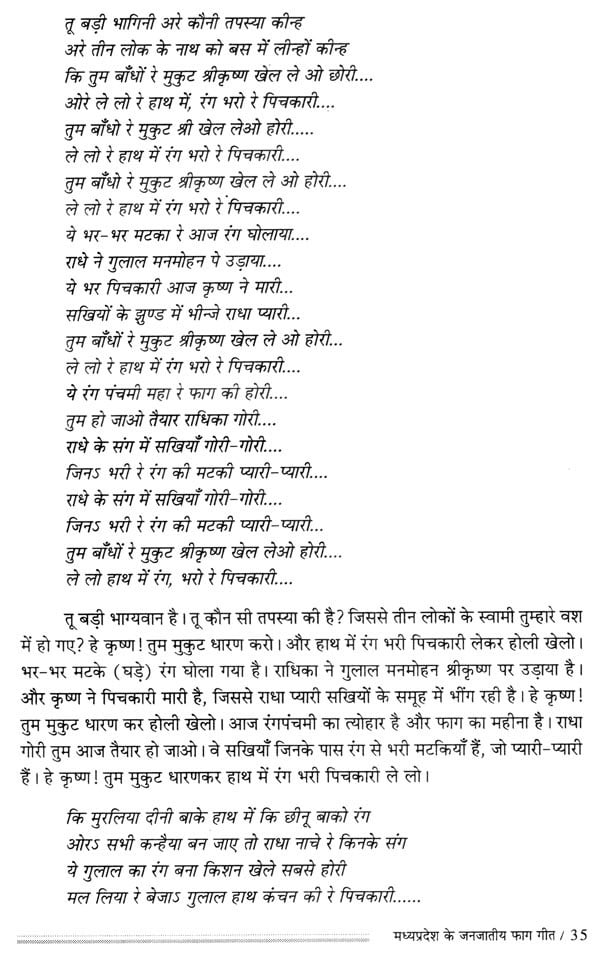 तू बड़ी भागिनी अरे कौनी तपस्या कीन्ह
अरे तीन लोक के नाथ को बस में लीन्हों कीन्ह
कि तुम बाँधों रे मुकुट श्रीकृष्ण खेल ले ओ छोरी....
ओरे ले लो रे हाथ में, रंग भरो रे पिचकारी....
तुम बाँधो रे मुकुट श्री खेल लेओ होरी.....
ले लो रे हाथ में रंग भरो रे पिचकारी....
तुम बाँधो रे मुकुट श्रीकृष्ण खेल ले ओ होरी....
ले लो रे हाथ में रंग भरो रे पिचकारी....
ये भर-भर मटका रे आज रंग घोलाया....
राधे ने गुलाल मनमोहन पे उड़ाया....
ये भर पिचकारी आज कृष्ण ने मारी...
सखियों के झुण्ड में भीन्जे राधा प्यारी...
तुम बाँधों रे मुकुट श्रीकृष्ण खेल ले ओ होरी...
ले लो रे हाथ में रंग भरो रे पिचकारी....
ये रंग पंचमी महा रे फाग की होरी....
तुम हो जाओ तैयार राधिका गोरी....
राधे के संग में सखियाँ गोरी-गोरी....
जिनऽ भरी रे रंग की मटकी प्यारी-प्यारी....
राधे के संग में सखियाँ गोरी-गोरी....
जिनऽ भरी रे रंग की मटकी प्यारी-प्यारी...
तुम बाँधों रे मुकुट श्रीकृष्ण खेल लेओ होरी....
ले लो हाथ में रंग, भरो रे पिचकारी....
तू बड़ी भाग्यवान है। तू कौन सी तपस्या की है? जिससे तीन लोकों के स्वामी तुम्हारे वश
में हो गए? हे कृष्ण! तुम मुकुट धारण करो। और हाथ में रंग भरी पिचकारी लेकर होली खेलो।
भर-भर मटके (घड़े) रंग घोला गया है। राधिका ने गुलाल मनमोहन श्रीकृष्ण पर उड़ाया है।
और कृष्ण ने पिचकारी मारी है, जिससे राधा प्यारी सखियों के समूह में भींग रही है। हे कृष्ण!
तुम मुकुट धारण कर होली खेलो। आज रंगपंचमी का त्योहार है और फाग का महीना है। राधा
गोरी तुम आज तैयार हो जाओ। वे सखियाँ जिनके पास रंग से भरी मटकियाँ हैं, जो प्यारी-प्यारी
हैं। हे कृष्ण! तुम मुकुट धारणकर हाथ में रंग भरी पिचकारी ले लो।
कि मुरलिया दीनी बाके हाथ में कि छीनू बाको रंग
ओरऽ सभी कन्हैया बन जाए तो राधा नाचे रे किनके संग
ये गुलाल का रंग बना किशन खेले सबसे होरी
मल लिया रे बेजाऽ गुलाल हाथ कंचन की रे पिचकारी......
मध्यप्रदेश के जनजातीय फाग गीत / 35